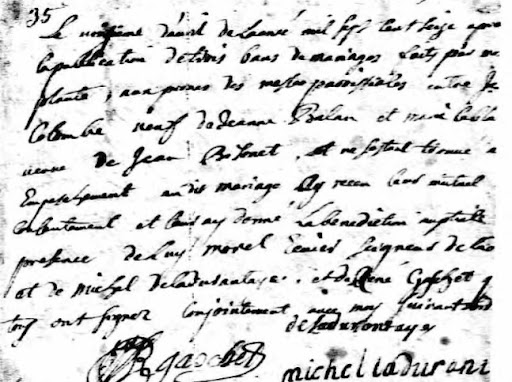 35
Le vingtieme d'avril de Lannee mil sept cent seize apres
la publication de trois bans de mariages faits par me
au prosne des messes paroissialles entre Je
Colombe veuf de Jeanne Balan et marie
veuve de Jean Bosonet, et ne sestant trouvé a
Empeschement au dit mariage Jay receu leur mutuel
consentement et leur ay donné La benediction nuptialle
presence de Luy morel Seigneur de
et de michel deladurantaye. et de René Gachet q
tous ont signez Conjointement avec moy suivant
de Ladurantaye
R gaschet michel ladurant